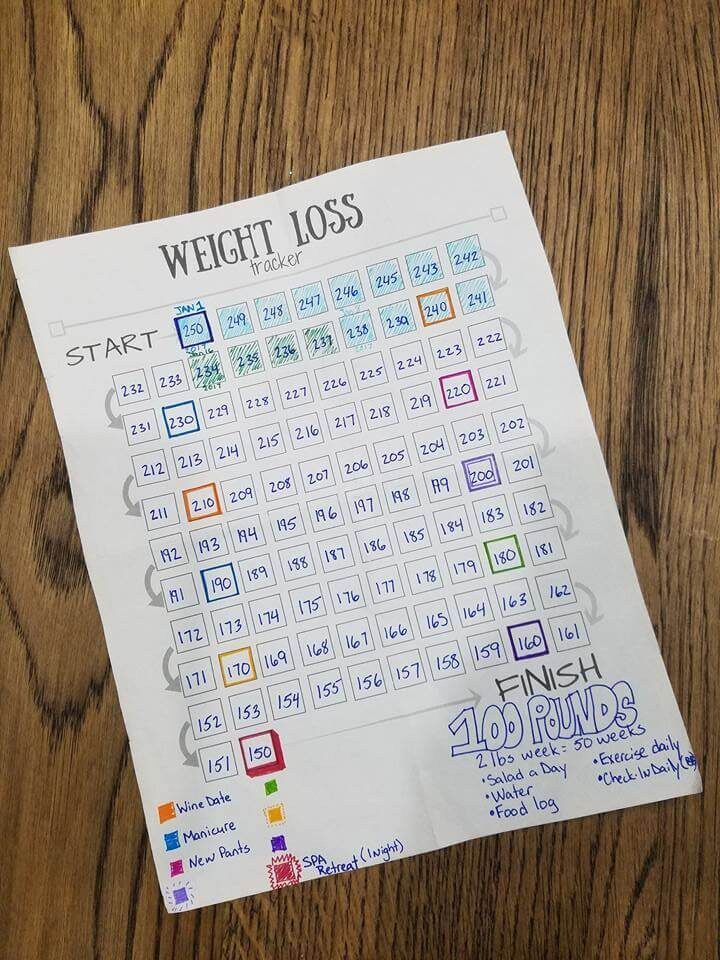 WEIGHT LOSS
tracker
JAN 1
START 250 249 248 247 246 245 243 242
2017
Jan 16
232 233 234 235 236 237 238 239 240 241
2017
231 230 229 228 227 226 225 224 223 222
212 213 214 215 216 217 218 219 220 221
211 210 209 208 207 206 205 204 203 202
192 193 194 195 196 197 198 199 200 201
191 190 189 188 187 186 185 184 183 182
172 173 174 175 176 177 178 179 180 181
171 170 169 168 167 166 165 164 163 162
152 153 154 155 156 157 158 159 160 161
151 150
FINISH
100 POUNDS
2 lbs week = 50 weeks
• Salad a Day
• Water
• Food log
• Exercise daily
• Check-In Daily
Wine Date
Manicure
New Pants
SPA
Retreat (1 Night)